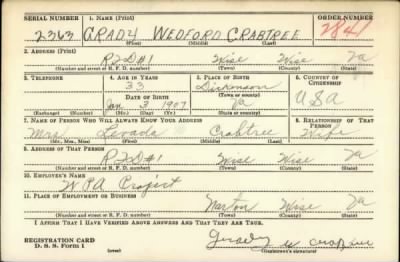 SERIAL NUMBER 1. NAME (Print) ORDER NUMBER
2363 GRADY WEDFORD CRABTREE 2841
(First) (Middle) (Last)
2. ADDRESS (Print)
RFD#1 Wise Wise Va
(Number and street or R. F. D. number) (Town) (County) (State)
3. TELEPHONE 4. AGE IN YEARS 5. PLACE OF BIRTH 6. COUNTRY OF CITIZENSHIP
33 Dickenson
DATE OF BIRTH (Town or county)
Jan 3 1907 Va USA
(Exchange) (Number) (Mo.) (Day) (Yr.) (State or country)
7. NAME OF PERSON WHO WILL ALWAYS KNOW YOUR ADDRESS 8. RELATIONSHIP OF THAT PERSON
Mrs Levada Crabtree Wife
(Mr., Mrs., Miss) (First) (Middle) (Last)
9. ADDRESS OF THAT PERSON
RFD#1 Wise Wise Va
(Number and street or R. F. D. number) (Town) (County) (State)
10. EMPLOYER'S NAME
WPA Project
11. PLACE OF EMPLOYMENT OR BUSINESS
Norton Wise Va
(Number and street or R. F. D. number) (Town) (County) (State)
I AFFIRM THAT I HAVE VERIFIED ABOVE ANSWERS AND THAT THEY ARE TRUE.
REGISTRATION CARD
D. S. S. Form 1 (over) (Registrant's signature)
Grady W